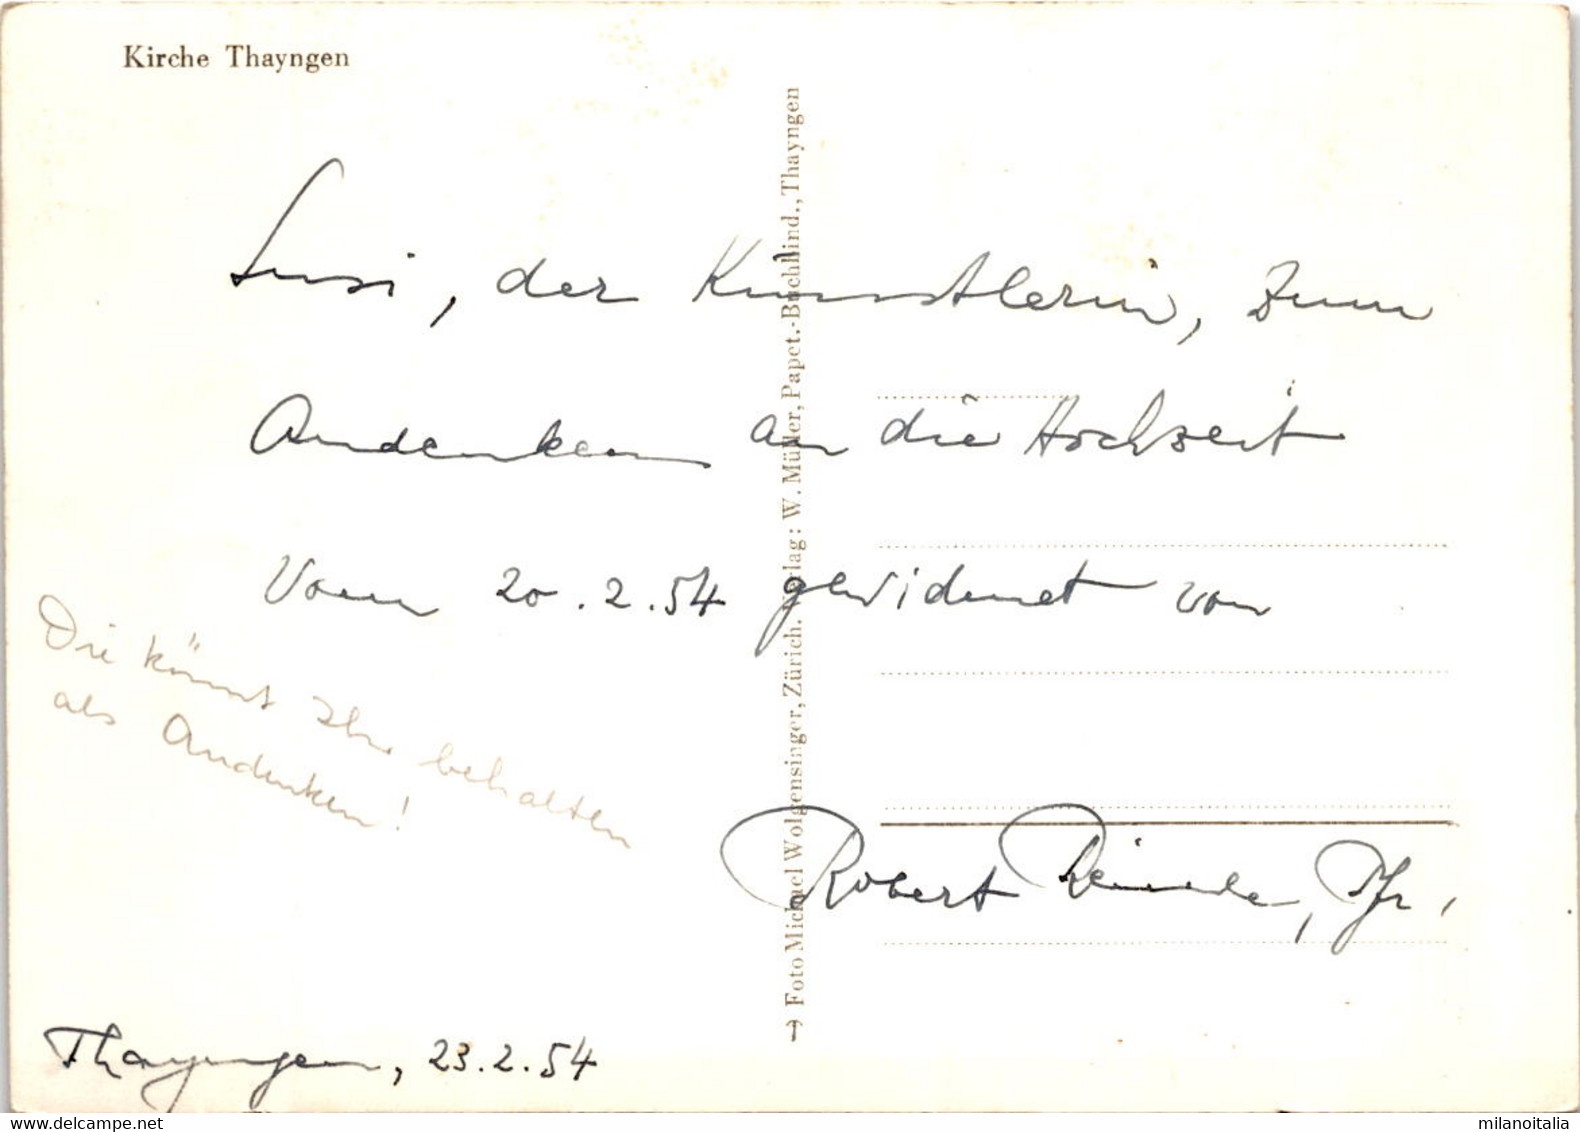 Kirche Thayngen
Susi, der Künstlerin, zum
Andenken an die Hochzeit
Vom 20.2.54 gewidmet von
Die könnt Ihr behalten
als Andenken!
Robert Pfr.
Thayngen, 23.2.54
Foto Michael Wolgensinger, Zürich. Verlag: W. Müller, Papet.-Buchbind., Thayngen
milanoitalia